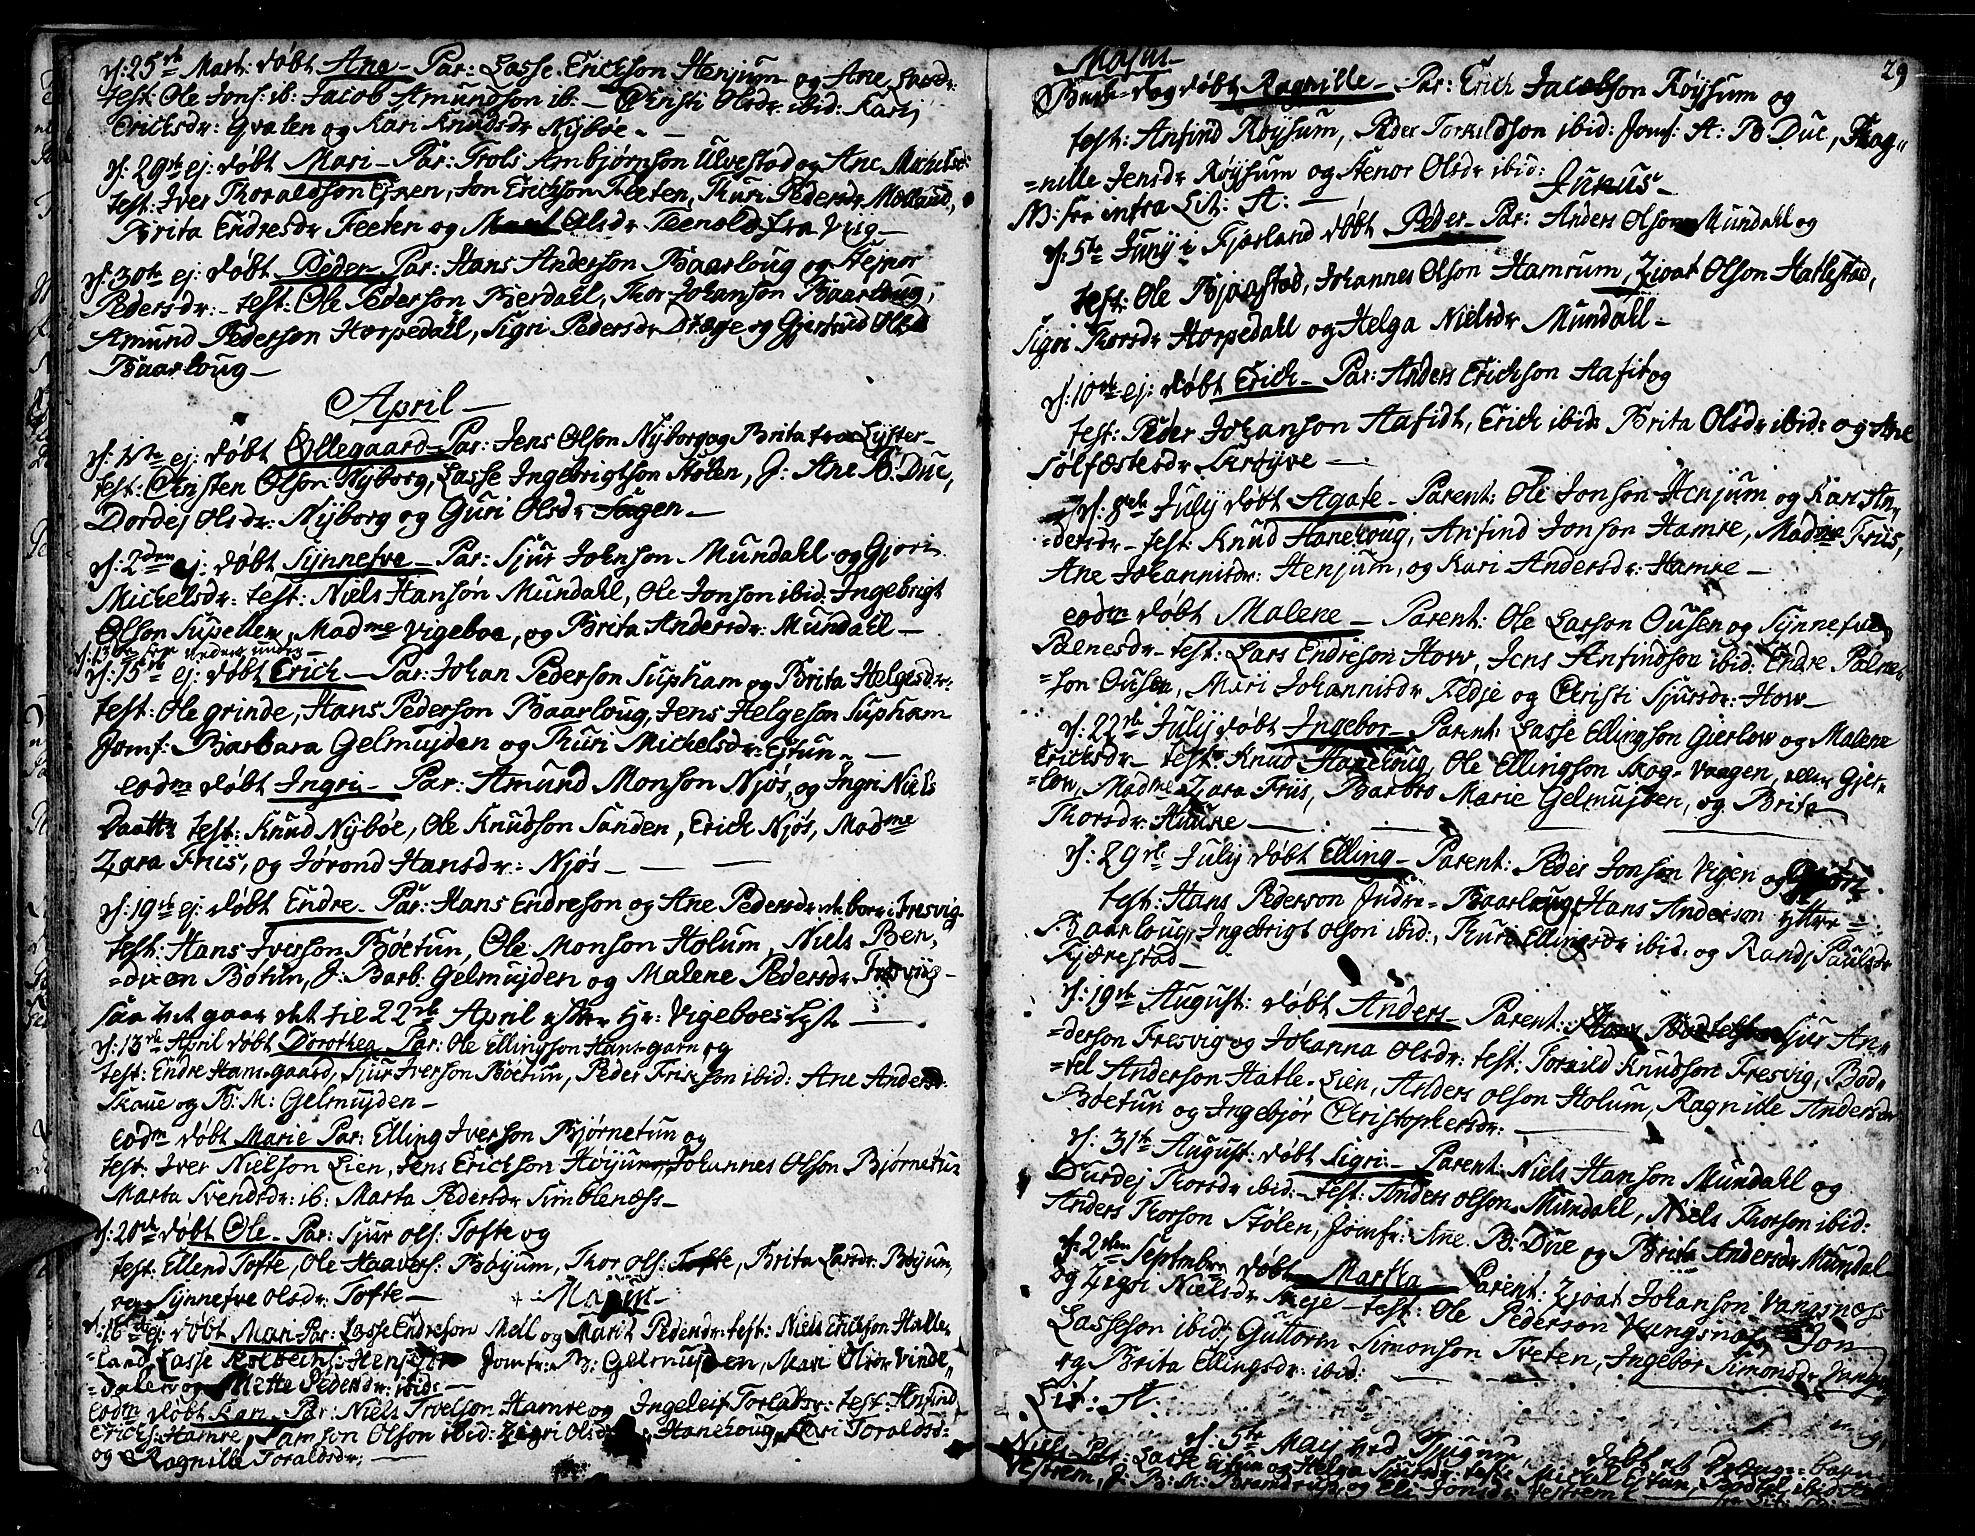 d: 25de Mart: døbt Ane - Par: Lasse Erickson Henjum og Ane Lassdr:
test: Ole Jons: ib: Jacob Amundson ib. - Christi Olsdr: ibid: Kari
Ericksdr: Qvalen og Kari Knudsdr Nybøe -
d: 29de ej: døbt Mari - Par: Trols Ambjørnson Ulvestad og Ane Michelsdr
test: Iver Thoraldson Eitren, Jon Erickson Feeten, Thuri Pedersdr Molland,
Brita Endresdr Feeten og Olsdr fra Viig -
d: 30te ej: døbt Peder - Par: Hans Anderson Baarloug og Stenor
Pedersdr: - test: Ole Pederson Berdahl, Thor Johanson Baarloug,
Amund Pederson Horpedall, Sigri Pedersdr Dræge og Gjertrud Olsd
Baarloug -
April -
d: 1ste ej: døbt Øllegaard - Par: Jens Olson Nyborg og Brita fra Lyster -
test: Christen Olson Nyborg, Lasse Ingebrigtson Holen, J: Ane B: Due,
Dordej Olsdr: Nyborg og Guri Olsdr
d: 2den ej: døbt Synnefve - Par: Sjur Johnson Mundahl og Gjori
Michelsdr: test: Niels Hanson Mundahl, Ole Jonson ibid: Ingebrigt
Olson Supellen, Madme Vigeboe, og Brita Andersdr: Mundahl -
d: 13de see nedere under -
d: 15de ej: døbt Erich - Par: Johan Pederson Supham og Brita Helgesdr:
test: Ole Grinde, Hans Pederson Baarloug, Jens Helgeson Supham
Jomf: Barbara Gelmujden og Thuri Michelsdr: Estun -
eodm døbt Ingri - Par: Amund Monson Njøs, og Ingri Niels
Daatt: test: Knud Nybøe, Ole Knudson Sanden, Erick Njøs, Madme
Zara Friis, og Jørond Hansdr: Njøs -
d: 19de ej: døbt Endre - Par: Hans Endreson og Ane Pedersdr i Fresvig
test: Hans Iverson Bøetun, Ole Monson Holum, Niels Ben,
=dixen Bøtun, J: Barb: Gelmujden og Malene Pedersdr Fresviig -
saa vit gaar det til 22de April efter Hr: Vigeboes List -
d: 13de April døbt Dorothea - Par: Ole Ellingson Hamsgarn og
test: Endre Hamsgaard, Sjur Iverson Bøetun, Peder Erikson ibid: Ane Andersdr:
Skaue og B: M: Gelmujden -
eodm døbt Marie Par: Elling Iverson Bjørnetun og
test: Iver Nielson Lien, Jens Erickson Høyum, Johannes Olson Bjørnetun
Marta Svendsdr: ib: Marta Pedersdr Simblenæss -
d: 20de døbt Ole - Par: Sjur ols: Tofte og
test: Ellend Tofte, Ole Haavers: Bøyum, Thor ols: Tofte, Brita Larsdr: Bøyum,
og Synnefve olsdr: Tofte -
Majus -
d: 16de ej: døbt Mari - Par: Lasse Endreson Mell og Marit Pedersdr: test: Niels Erickson Halle,
=land, Lasse Jomfr: B: Gelmujden, Mari Olsdr Vinde,,
=dalen og Mette Pedersdr: ibid: -
eodm døbt Kari - Par: Niels Hamre og Ingeleif Torladsdr: test: Anfind
Ericks: Hamre, Samson Olson ibid: Zigri Olsd Haneloug, Kari Toraldsd:
og Ragnille Toraldsdr: -
29
Majus -
Buse-dag døbt Ragnille - Par: Erich Jacobson Røysum og
test: Anfind Røysum, Peder Torkildson ibid: Jomf: A: B Due, Rag,,
=nille Jensdr Røysum og Stenor Olsdr ibid:
NB: see infra Lit: A: -
Junus -
d: 5te Junij i Fjærland døbt Peder - Par: Anders Olson Mundahl og
test: Ole Bjaastad, Johannes Olson Hamrum, Zjoat Olson Hatlestad,
Sigri Thorsdr Horpedahl og Helga Nielsdr Mundall -
d: 10de ej: døbt Erich - Par: Anders Erickson Aafit og
test: Peder Johanson Aafidt, Erich ibid: Brita Olsdr ibid: og Ane
Sølfæstesdr
d: 8de Julij døbt Agate - Parent: Ole Jonson Henjum og Kari An,,
=dersdr - test: Knud Haneloug, Anfind Jonson Hamre, Madme Friis,
Ane Johannisdr: Henjum, og Kari Andersdr: Hamre -
eodm døbt Malene - Parent: Ole Larson Ousen og Synnefve
Palnesdr - test: Lars Endreson How, Jens Anfindson ibid: Endre Palne,,
=son Ousen, Mari Johannisdr Fedje og Christi Sjursdr: How -
d: 22de Julij døbt Ingebor - Parent: Lasse Ellingson Gjerlow og Malene
Ericksdr - test: Knud Haneloug, Ole Ellingson Skog-Vaagen, eller Gjer,,
=low, Madme Zara Friis, Barbro Marie Gelmujden, og Brita
Thorsdr: Hauke -
d: 29de Julij døbt Elling - Parent: Peder Jonson Vigen og
test: Hans Pederson Indre-Baarloug, Hans Anderson Yttre=
Baarloug, Ingebrigt Olson ibid:, Thuri Ellingsdr ibid: og Randj Paulsdr
Fjærestad -
d: 19de August: døbt Anders - Parent: Sjur An,,
=derson Fresvig og Johanna Olsdr: test: Torkild Knudson Fresvig, Bod,,
=tel Anderson Hatle-Lien, Anders Olson Holum, Ragnille Andersdr
Bøetun og Ingebjør Christophersdr: -
d: 31te August: døbt Sigri - Parent: Niels Hanson Mundahl og
Durdej Thorsdr ibid: - test: Anders Olson Mundahl, Niels Thorson ibid:
Anders Thorson Stølen, Jomfr: Ane B: Due og Brita Andersdr Mundal
d: 2den Septembr døbt Martha - Parent: Zjoat Johanson Vangsnæss
og Zigri Nielsdr Feje - test: Ole Pederson Vangsnæs, Jon
Lasseson ibid:, Guttorm Simonson Tveten, Ingebor Simonsdr Vangs
og Brita Ellingsdr: ibid: -
Lit: A:
d: 5te Maij ved Tjugum døbt et barn
Niels - Par: Lasse Estun og Helga Sjursdr: test: Michel Estun, Bodtel ibid:
Vestrem, J: B: M: og Eli Jonsdr: Vestrem -